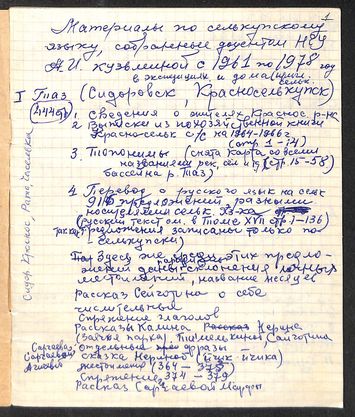 1
Материалы по селькупскому
языку, собранные доцентом НГУ
А.И. Кузьминой с 1961 по 1978 год
в экспедициях и дома (пригл. сельк.
I Таз (Сидоровск, Красноселькуп)
(444 стр)
1. Сведения о жителях Краснос. р-на
2. Выписки из похозяйственной книги
Красносельк с/с на 1964-1966 г.
(стр 1-14)
3. Топонимы (снята карта со всеми
названиями рек, оз и т.д. (стр. 15-58)
бассейна р. Таз)
4. Перевод с русского язык на сельк
910 предложений разными
носителями сельк. яз-ка
(русский текст см. в Томе XVII стр 1-136)
так как предложения записаны только по-
селькупски)
Здесь же в этих предло-
жений даны склонения личных
местоимений, название месяцев
Рассказ Сайготина о себе
числительные
Спряжение глаголов
Рассказы Калина Нерина
отдельные фразы
сказка Нериной (ичик-ичика)
местоимен (364-373
Спряжение 374-379
Рассказ Саргаевой Марфы